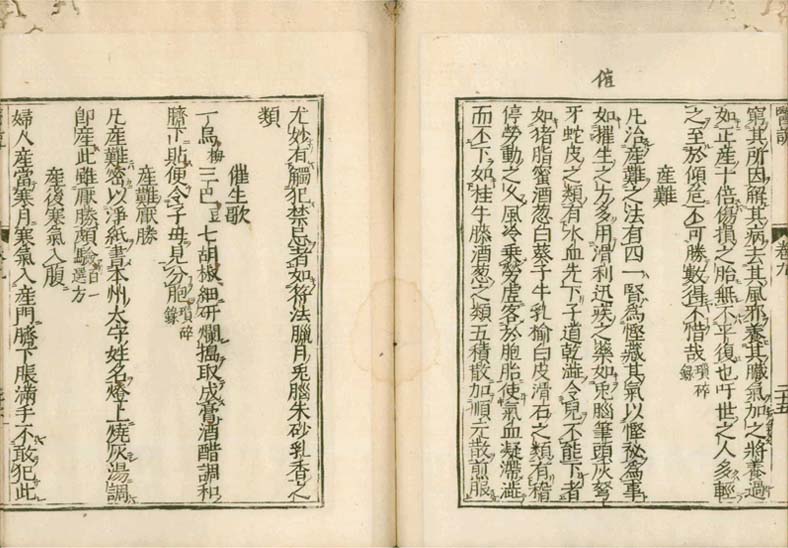 醫說 卷九 二十五
催
窮其所因解其病去其風邪養其臟氣加之將養過
如正產十倍傷損之胎無不平復也吁世之人多輕
之至於傾危不可勝數得不惜哉瑣碎錄
產難
凡治產難之法有四一腎爲慳藏其氣以慳秘爲事
如摧生之方多用滑利迅疾之藥如兎腦筆頭灰弩
牙蛇皮之類有水血先下子道乾澁令兒不能下者
如猪脂蜜酒葱白葵子牛乳榆白皮滑石之類有稽
停勞動之久風冷乘勞虛客於胞胎使氣血凝滯澁
而不下如桂牛膝酒葱之類五積散加順元散煎服
尤妙有觸犯禁忌者如符法臘月兎腦朱砂乳香之
類
催生歌
一烏梅三巴豆七胡椒細研爛搗取成膏酒醋調和
臍下貼便令子母見分胞瑣碎錄
產難厭勝
凡產難密以淨紙書本州太守姓名燈上燒灰湯調
即產此雖厭勝頗驗百一選方
產後寒氣入腹
婦人產當寒月寒氣入產門臍下脹滿手不敢犯此